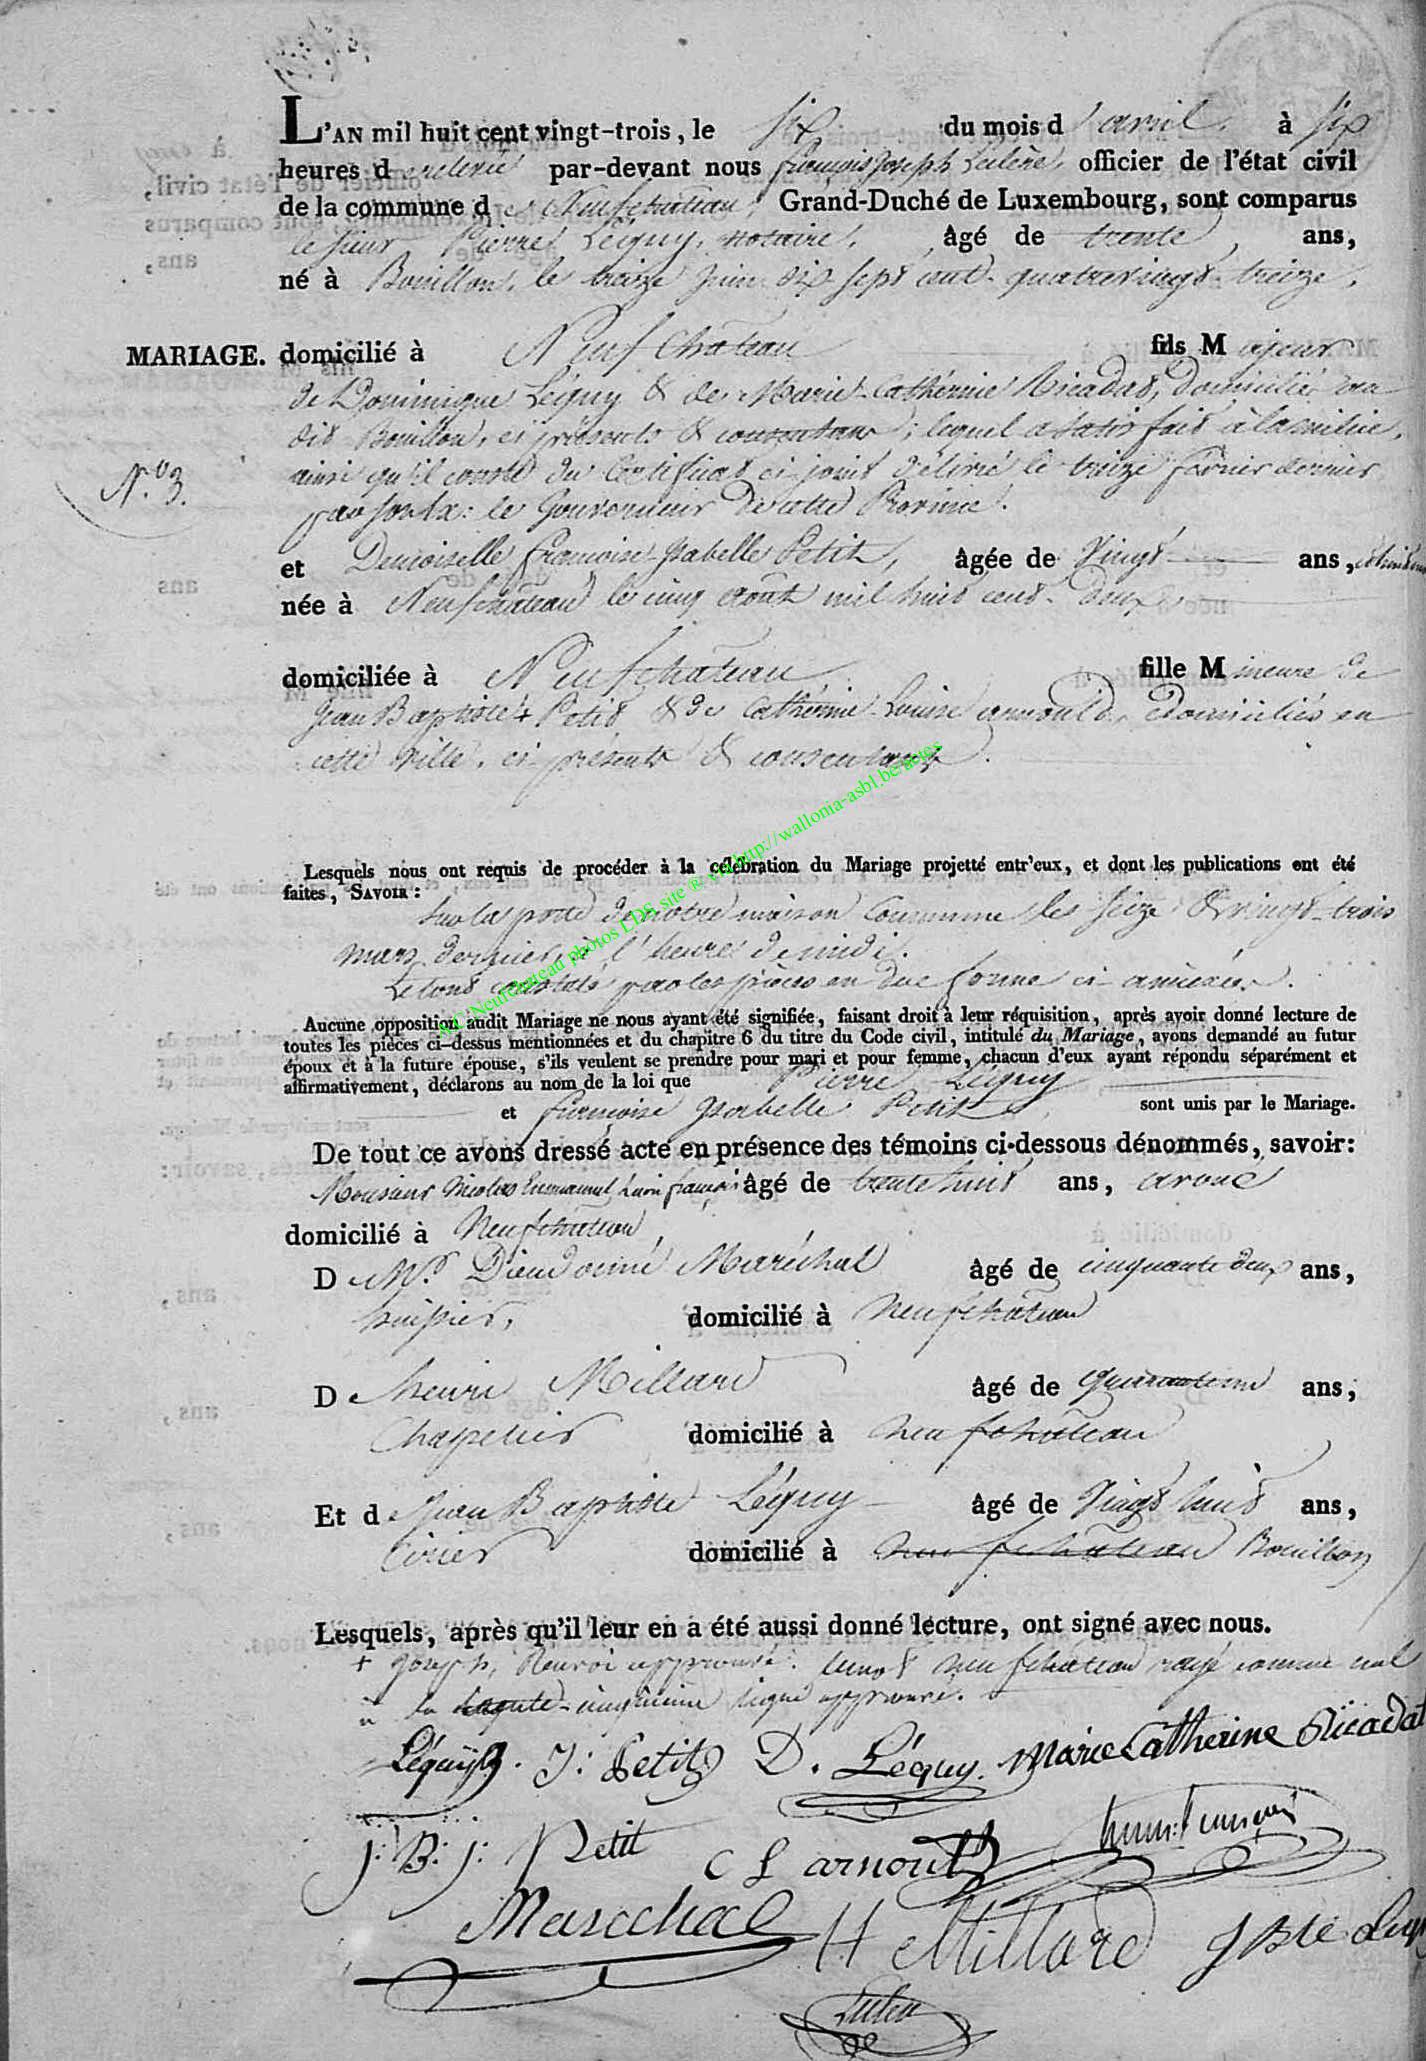 L'AN mil huit cent vingt-trois, le six du mois d'avril, à six
heures de relevée par-devant nous françois Joseph officier de l'état civil
de la commune de Neufchateau, Grand-Duché de Luxembourg, sont comparus
le sieur Pierre Léguy, notaire, âgé de trente ans,
né à Bouillon, le treize Juin dix sept cent quatrevingt treize,
MARIAGE. domicilié à Neufchateau fils Majeur
de Dominique Léguy & de Marie Cathérine Ricadat, domiciliés au
dit Bouillon, ci présents & consentans, lequel a satisfait à la milice,
N.º 3.
ainsi qu'il conste du Certificat ci-joint délivré le treize février dernier
par le Gouverneur de cette Province.
et Demoiselle francoise Isabelle Petit, âgée de Vingt ans,
née à Neufchateau le cinq août mil huit cent deux
domiciliée à Neufchateau fille Mineure de
Jean Baptiste + Petit & de Cathérine Louise arnould, Domiciliés en
cette ville, ci présents & consentans.
Lesquels nous ont requis de procéder à la célébration du Mariage projetté entr'eux, et dont les publications ont été
faites, SAVOIR :
Sur la porte de notre maison Commune les seize & vingt-trois
mars dernier, à l'heure de midi.
Le tout constaté par les pièces en due forme ci-annexées.
Aucune opposition audit Mariage ne nous ayant été signifiée, faisant droit à leur réquisition, après avoir donné lecture de
toutes les pièces ci-dessus mentionnées et du chapitre 6 du titre du Code civil, intitulé du Mariage, avons demandé au futur
époux et à la future épouse, s'ils veulent se prendre pour mari et pour femme, chacun d'eux ayant répondu séparément et
affirmativement, déclarons au nom de la loi que Pierre Léguy
et françoise Isabelle Petit sont unis par le Mariage.
De tout ce avons dressé acte en présence des témoins ci-dessous dénommés, savoir :
Monsieur Nicolas Emmanuel françois âgé de trente huit ans, avoué
domicilié à Neufchateau,
De Mr. Dieudonné Maréchal âgé de cinquante deux ans,
huissier, domicilié à Neufchateau
De henri Millard âgé de ans,
Chapelier domicilié à neufchateau
Et de Jean Baptiste Léguy âgé de Vingt huit ans,
Cirier domicilié à neufchateau Bouillon
Lesquels, après qu'il leur en a été aussi donné lecture, ont signé avec nous.
+ Joseph, Renvoi approuvé. le mot neufchateau rayé comme nul
à la ligne approuvé.
Léguy J: Petit D. Léguy Marie Catherine Ricadat
J: B: J: Petit C L arnould
Marechal H Millard J Bte
A.C Neufchateau photos LDS site ® via http://wallonia-asbl.be/actes